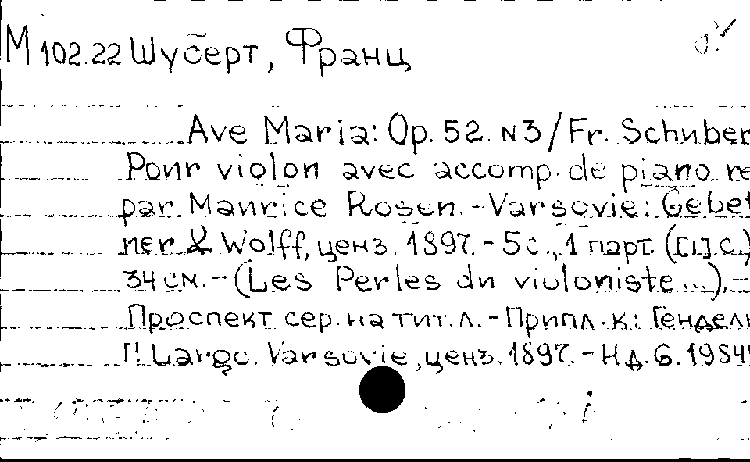 М 102.22 Шуберт, Франц
Ave Maria: Op. 52. N3 / Fr. Schuber
Pour violon avec accomp. de piano re
par Maurice Rosen. - Varsovie: Gebet
ner & Wolff, ценз. 1897. - 5 с., 1 парт. ([1] с.)
34 см. - (Les Perles du violoniste...). -
Проспект сер. на тит. л. - Припл. к: Гендель
Largo. Varsovie, ценз. 1897. - Н.д. G. 1984